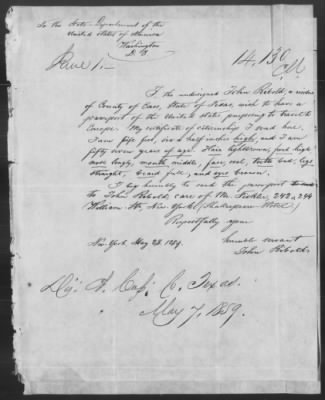 To the State Department of the
United States of America
Washington
D. C.
June 1.
14,130
I the undersigned John Ribold, a native
of County of Cass, State of Texas, wish to have a
passport of the United States purposing to travel to
Europe. My certificate of citizenship I send here.
I am five foot, six & half inches high, and I am
fifty seven years of age. Hair lightbrown, forehead high
nose longly, mouth middle, face oval, teeth bad, legs
straight, beard full, and eyes brown.
I beg humbly to send the passport
to John Ribold, care of Mr. Fickler, 242 & 244
William St. New York (Shakespeare Hotel)
Respectfully your
humble servant
New York May 28. 1859.
John Ribold.
Texas.
May 7, 1859.